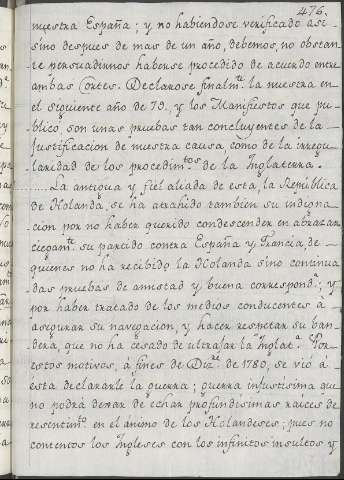 476.
nuestra España; y no habiendose verificado asi
sino despues de mas de un año, debemos, no obstan
te persuadirnos haberse procedido de acuerdo entre
ambas Cortes. Declarose finalmte. la nuestra en
el siguiente año de 79. y los Manifiestos que pu
blicó, son unas pruebas tan concluyentes de la
Justificacion de nuestra causa, como de la irregu
laridad de los procedimtos. de la Inglaterra.
La antigua y fiel aliada de esta, la Republica
de Holanda, se ha atrahido tambien su indigna
cion por no haber querido condescender en abrazar
ciegamte. su partido contra España y Francia, de
quienes no ha recibido la Holanda sino continua
das pruebas de amistad y buena correspondª.; y
por haber tratado de los medios conducentes á
asegurar su navegacion, y hacer respetar su ban
dera, que no ha cesado de ultrajar la Inglatª. Por
estos motivos, á fines de Dizre. de 1780, se vió á
esta declararle la guerra; guerra injustisima que
no podrá dexar de echar profundisimas raices de
resentimto. en el ánimo de los Holandeses; pues no
contentos los Ingleses con los infinitos insultos y